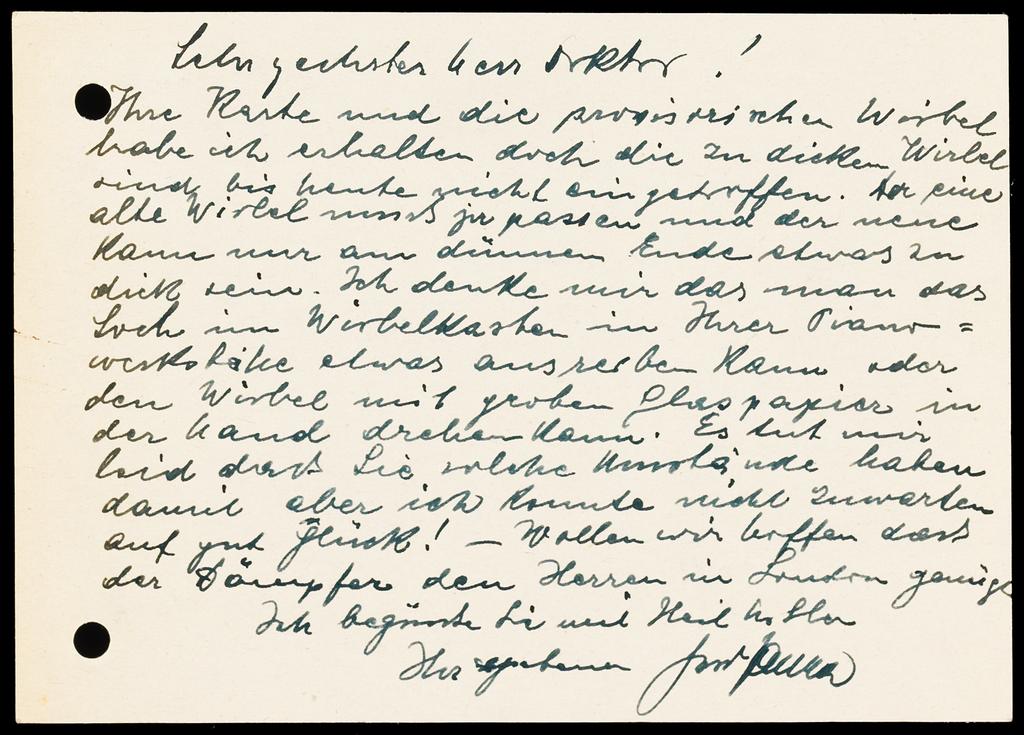 Sehr geehrter Herr Doktor !
Ihre Karte und die provisorischen Wirbel
habe ich erhalten doch die zu dicken Wirbel
sind bis heute nicht eingetroffen. Der eine
alte Wirbel muss ja passen und der neue
kann nur am dünnen Ende etwas zu
dick sein. Ich denke mir das man das
Loch im Wirbelkasten in Ihrer Piano =
werkstätte etwas ausreiben kann oder
den Wirbel mit groben Glaspapier in
der Hand drehen kann. Es tut mir
leid dass Sie solche Umstände haben
damit aber ich konnte nicht zuwarten
auf gut Glück! — Wollen wir hoffen dass
der Dämpfer den Herren in London genügt
Ich begrüsse Sie mit Heil Hitler
Ihr ergebener